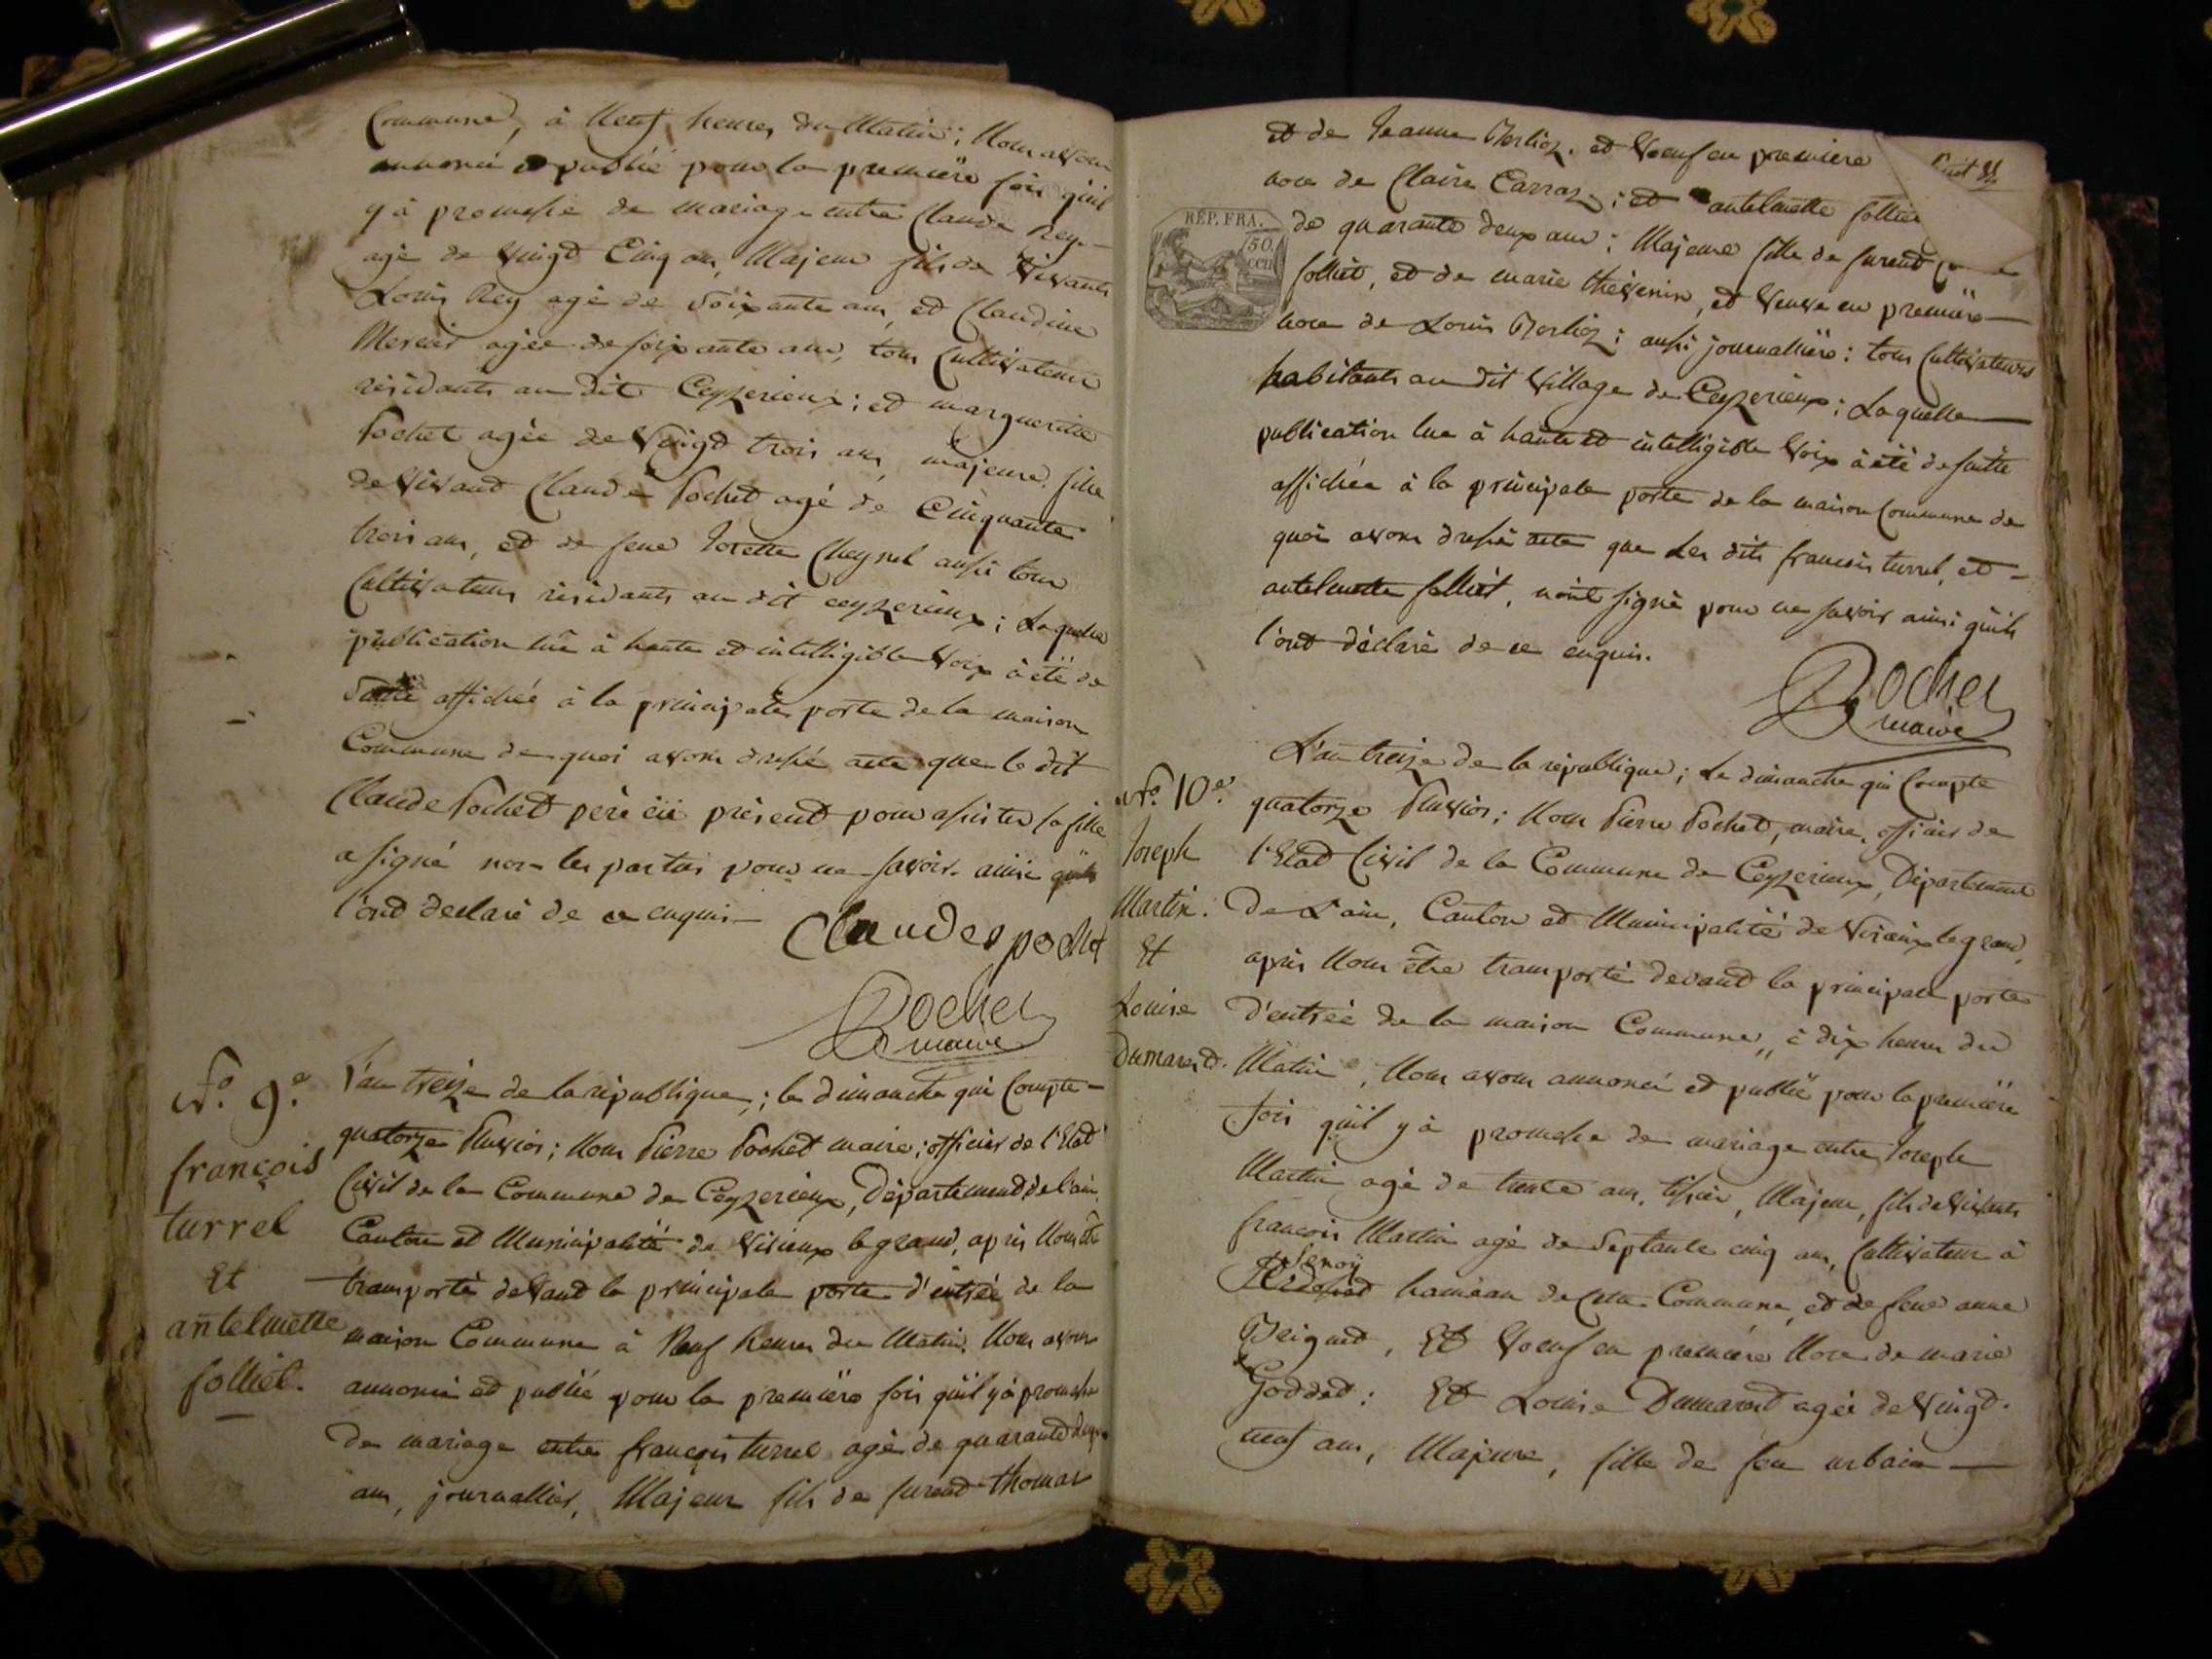 Commune, à Neuf heures du Matin; Nous avons
annoncé et publié pour la première fois qu'il
y à promesse de mariage entre Claude Rey
agé de Vingt Cinq ans, Majeur fils de Vivants
Louis Rey agé de Soixante ans, et Claudine
Mercier agée de soixante ans, tous Cultivateurs
résidants au dit Ceyzerieux; et margueritte
Pochet agée de Vingt trois ans, majeure, fille
de Vivant Claude Pochet agé de Cinquante
trois ans, et de feue Josette Cheynel aussi tous
Cultivateurs résidants au dit ceyzerieux; Laquelle
publication lue à haute et intelligible Voix à été de
Suitte affichée à la principale porte de la maison
Commune de quoi avons dressé acte que le dit
Claude Pochet père ici présent pour assister sa fille
a signé non les parties pour ne savoir ainsi qu'ils
l'ont déclaré de ce enquis
Claudes pochet
Pochet
maire
N.º 9.e
françois
turrel
Et
antelmette
folliet.
L'an treize de la république; le dimanche qui Compte
quatorze Pluviôs; Nous Pierre Pochet maire; officier de l'Etat
Civil de la Commune de Ceyzerieux, Département de l'ain,
Canton et Municipalité de Virieux le grand, après Nous être
transporté devant la principale porte d'entrée de la
maison Commune à Neuf heures du Matin, Nous avons
annoncé et publié pour la première fois qu'il y à promesse
de mariage entre françois turrel agé de quarante deux
ans, journallier, Majeur fils de furent thomas
et de Jeanne Berlioz, et Veuf en première
noce de Claire Carraz; et antelmette folliet
RÉP. FRA.
50.
cen
de quarante deux ans; Majeure fille de furent
folliet, et de marie thévenin, et Veuve en première
noce de Louis Berlioz; aussi journallière: tous Cultivateurs
habitants au dit Village de Ceyzerieux; Laquelle
publication lue à haute et intelligible Voix à été de suitte
affichée à la principale porte de la maison Commune de
quoi avons dressé acte que les dits françois turrel, et
antelmette folliet, n'ont signé pour ne savoir ainsi qu'ils
l'ont déclaré de ce enquis.
Pochet
maire
N.º 10.e
Joseph
Martin.
Et
Louise
Dumarest.
L'an treize de la république; Le dimanche qui Compte
quatorze Pluviôs; Nous Pierre Pochet, maire, officier de
l'Etat Civil de la Commune de Ceyzerieux, Département
De L'ain, Canton et Municipalité de Virieux le grand,
après Nous être transporté devant la principale porte
d'entrée de la maison Commune, à dix heures du
Matin, Nous avons annoncé et publié pour la première
fois qu'il y à promesse de mariage entre Joseph
Martin agé de trente ans, tissier, Majeur, fils de Vivants
françois Martin agé de Septante cinq ans, Cultivateur à
hameau de cette Commune, et de feue anne
Beignet, Et Veuf en première Noce de marie
Goddet: Et Louise Dumarest agée de Vingt-
neuf ans, Majeure, fille de feu urbain